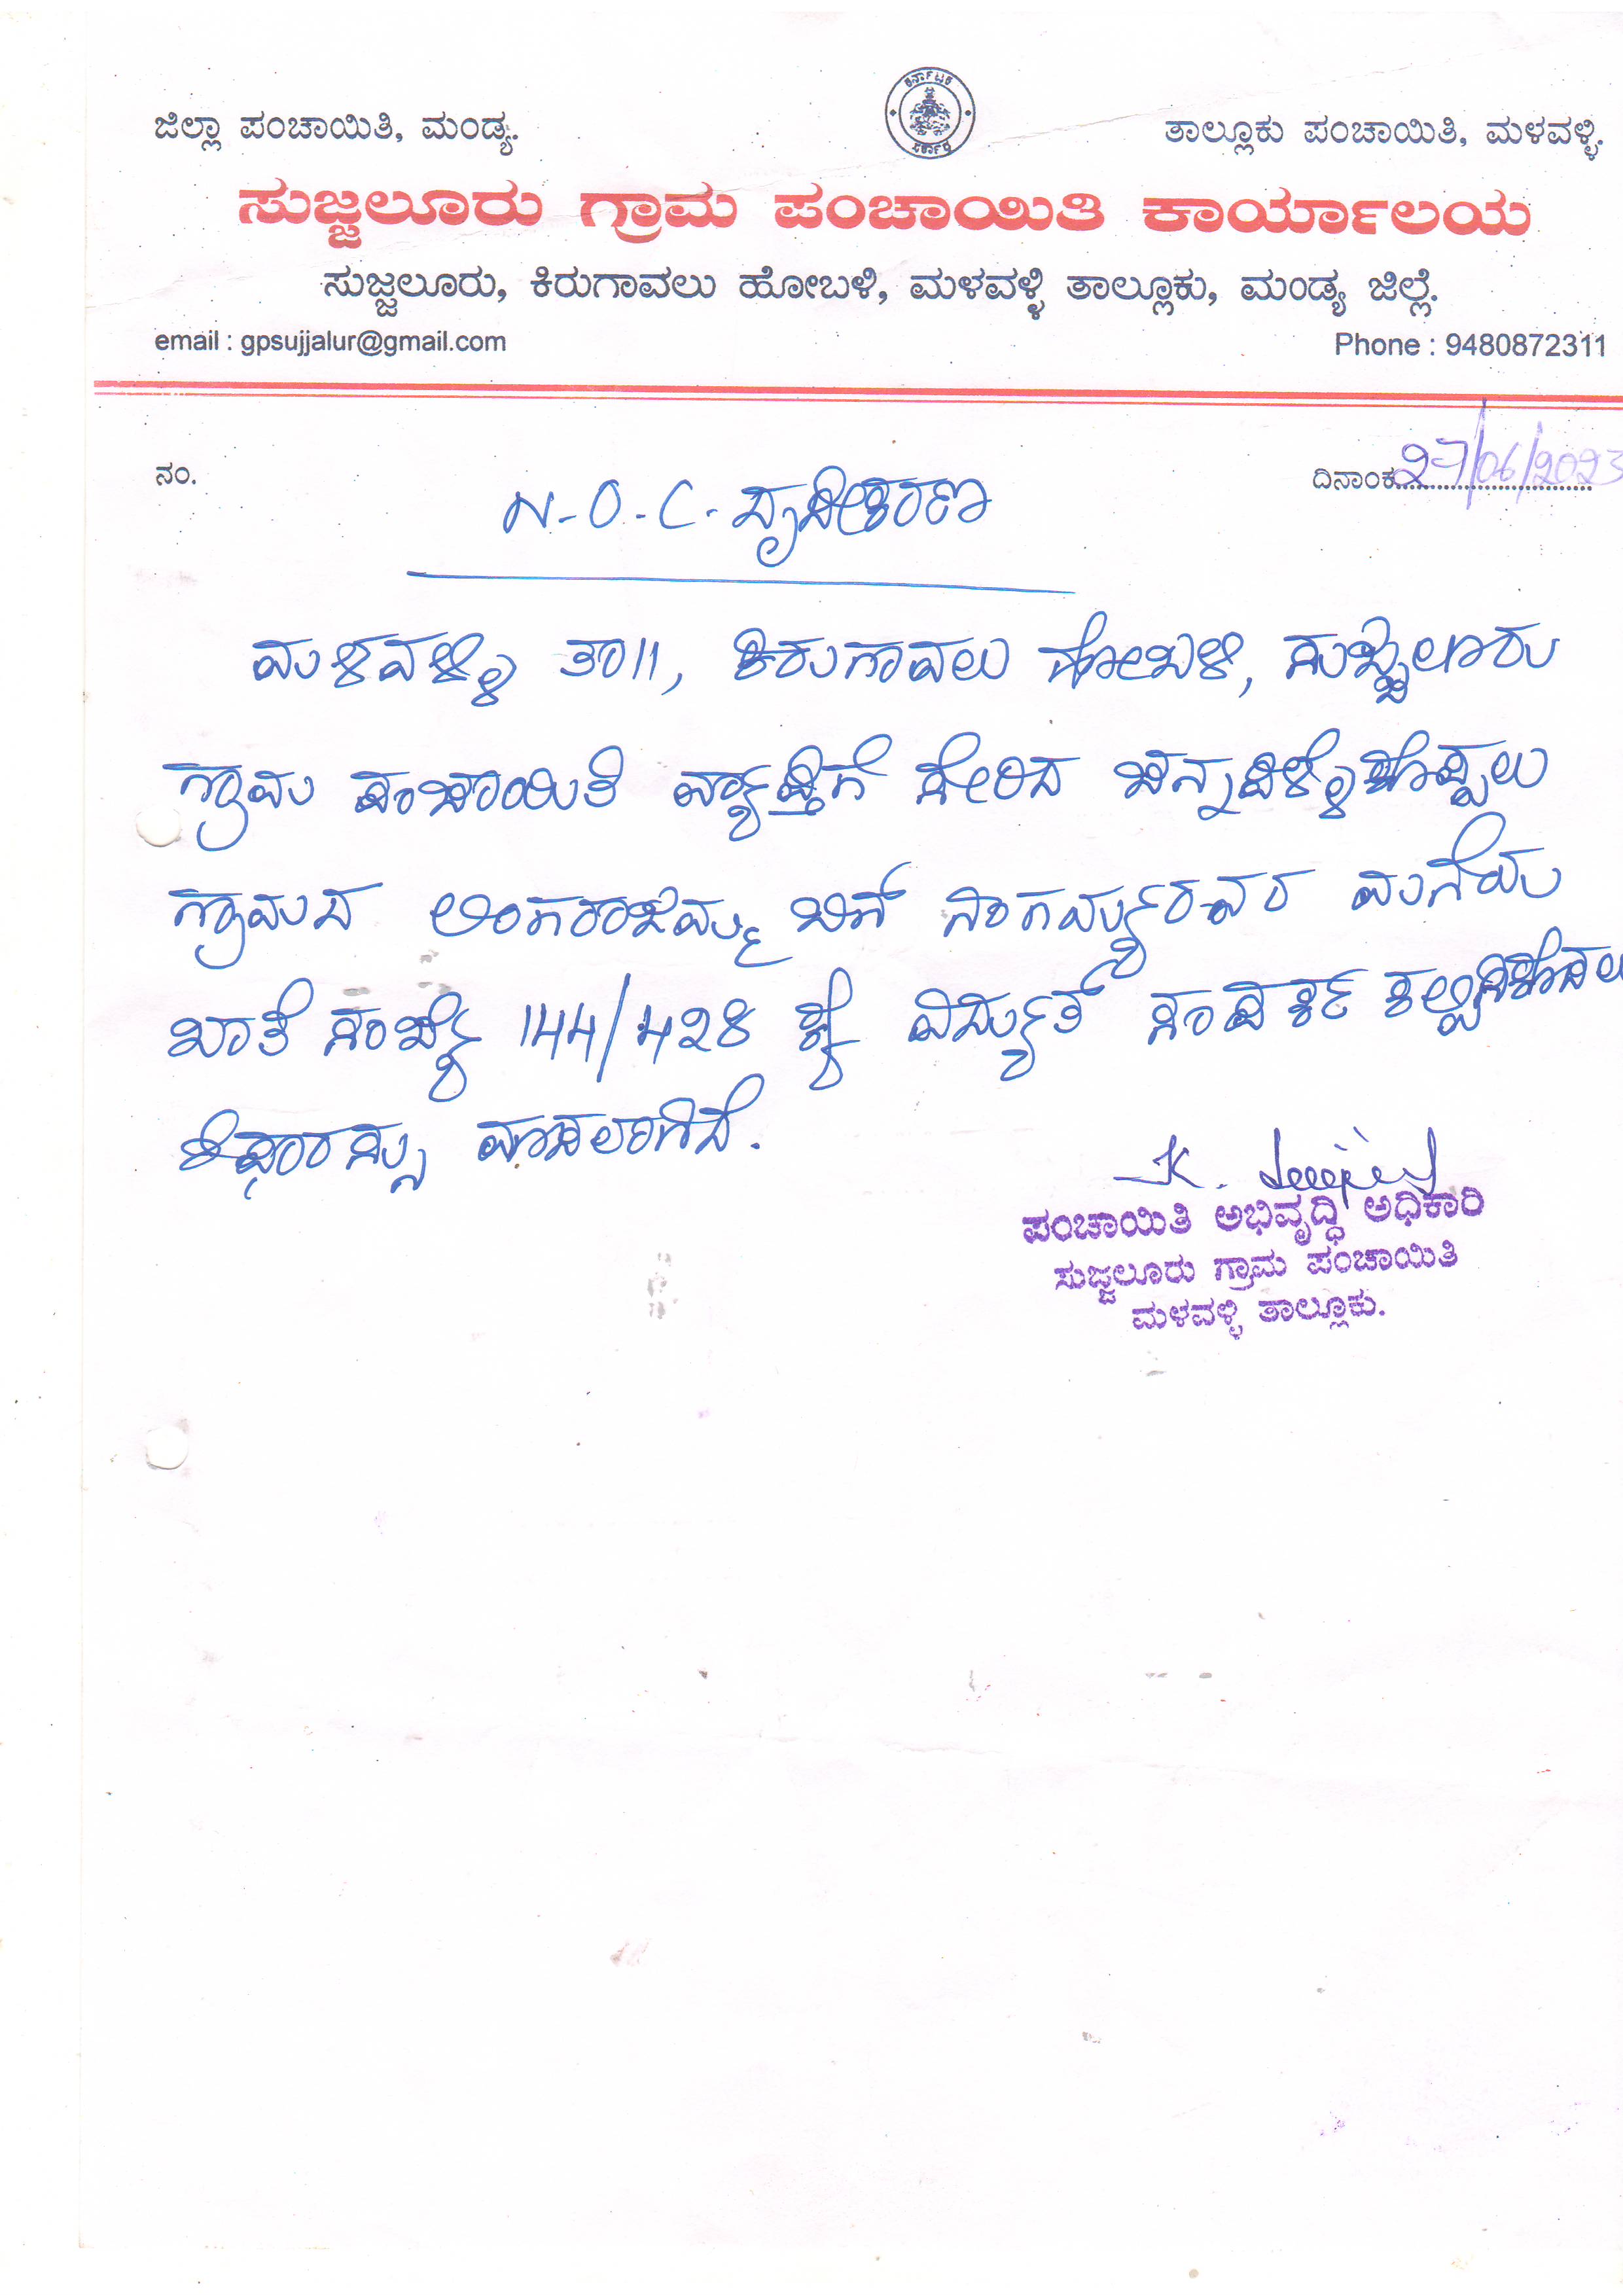 ಕರ್ನಾಟಕ ಸರ್ಕಾರ
ಜಿಲ್ಲಾ ಪಂಚಾಯಿತಿ, ಮಂಡ್ಯ. ತಾಲ್ಲೂಕು ಪಂಚಾಯಿತಿ, ಮಳವಳ್ಳಿ.
ಸುಜ್ಜಲೂರು ಗ್ರಾಮ ಪಂಚಾಯಿತಿ ಕಾರ್ಯಾಲಯ
ಸುಜ್ಜಲೂರು, ಕಿರುಗಾವಲು ಹೋಬಳಿ, ಮಳವಳ್ಳಿ ತಾಲ್ಲೂಕು, ಮಂಡ್ಯ ಜಿಲ್ಲೆ.
email : gpsujjalur@gmail.com Phone : 9480872311
ನಂ. ದಿನಾಂಕ 27/06/2023
N-O-C-
ಮಳವಳ್ಳಿ ತಾ||, ಕಿರುಗಾವಲು ಹೋಬಳಿ, ಸುಜ್ಜಲೂರು
ಗ್ರಾಮ ಪಂಚಾಯಿತಿ ವ್ಯಾಪ್ತಿಗೆ ಸೇರಿದ
ಗ್ರಾಮದ ಮನೆಯ
ಖಾತೆ ಸಂಖ್ಯೆ 144/428 ಕ್ಕೆ ವಿದ್ಯುತ್ ಸಂಪರ್ಕ ಕಲ್ಪಿಸಿಕೊಡಲು
ಶಿಫಾರಸ್ಸು ಮಾಡಲಾಗಿದೆ.
ಪಂಚಾಯಿತಿ ಅಭಿವೃದ್ಧಿ ಅಧಿಕಾರಿ
ಸುಜ್ಜಲೂರು ಗ್ರಾಮ ಪಂಚಾಯಿತಿ
ಮಳವಳ್ಳಿ ತಾಲ್ಲೂಕು.